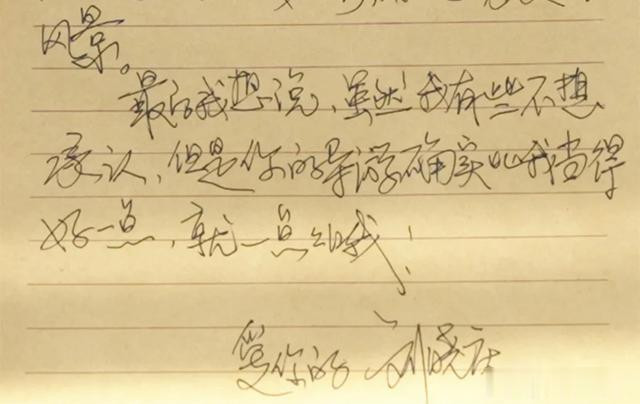 风景。
最后我想说，虽然我有些不想
承认，但是你的导游确实比我当得
好一点，就一点点哦！
爱你的 刘晓庆